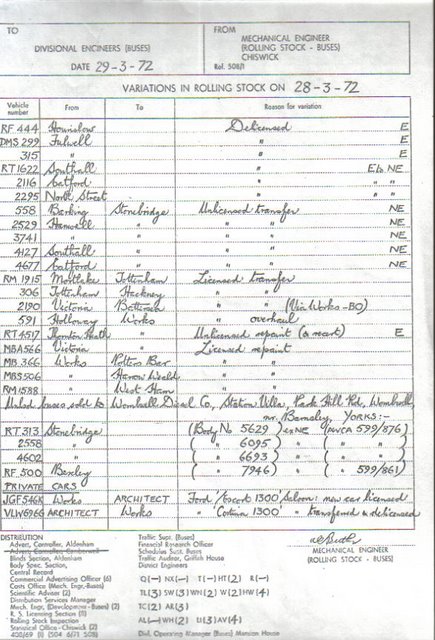 TO
FROM
DIVISIONAL ENGINEERS (BUSES)
MECHANICAL ENGINEER
(ROLLING STOCK - BUSES)
CHISWICK
DATE 29-3-72
Ref. 508/1
VARIATIONS IN ROLLING STOCK ON 28-3-72
Vehicle number From To Reason for variation
RF 444 Hounslow Delicensed E
DMS 299 Fulwell " E
315 " " E
RT 1622 Southall " Eb NE
2116 Catford " " "
2295 North Street " " "
558 Barking Stonebridge Unlicensed transfer NE
2529 Hanwell " " " NE
3741 " " " " NE
4127 Southall " " " NE
4677 Catford " " " NE
RM 1915 Mortlake Tottenham Licensed transfer
306 Tottenham Hackney " "
2190 Victoria Battersea " " (Via Works - BO)
591 Holloway Works " overhaul
RT 4517 Thornton Heath " Unlicensed repaint (a recert) E
MBA 566 Victoria " Licensed repaint
MB 366 Works Potters Bar " "
MBS 506 " Harrow Weald " "
RM 1588 " West Ham " "
Unlsd. buses sold to Wombwell Diesel Co, Station Villa, Park Hill Rd, Wombwell,
nr. Barnsley, YORKS:-
RT 313 Stonebridge (Body No 5629) ex NE 599/876)
2558 " ( " 6095) " ( " " )
4602 " ( " 6693) " ( " " )
RF 500 Bexley ( " 7946) " ( " 599/861)
PRIVATE CARS
JGF 546K Works ARCHITECT Ford 'Escort 1300' Saloon: new car licensed
VLW 696G ARCHITECT Works " 'Cortina 1300' " transferred & delicensed
MECHANICAL ENGINEER
(ROLLING STOCK - BUSES)
DISTRIBUTION
Advert. Controller, Aldenham
Advert. Controller Camberwell
Blinds Section, Aldenham
Body Spec. Section,
Central Record
Commercial Advertising Officer (6)
Costs Office (Mech. Engr.-Buses)
Scientific Adviser (2)
Distribution Services Manager
Mech. Engr. (Development - Buses) (2)
R. S. Licensing Section (11)
Rolling Stock Inspection
Statistical Office - Chiswick (2)
408/69 (1) (504 6/71 508)
Traffic Supt. (Buses)
Financial Research Officer
Schedules Supt. Buses
Traffic Auditor, Griffith House
District Engineers
Q(—) NX(—) T(—) HT(2) R(—)
TL(3) SW(3) WN(2) W(2) HW(4)
TC(2) AR(3)
AL(—) WH(2) U(3) AV(4)
Divl. Operating Manager (Buses) Mansion House